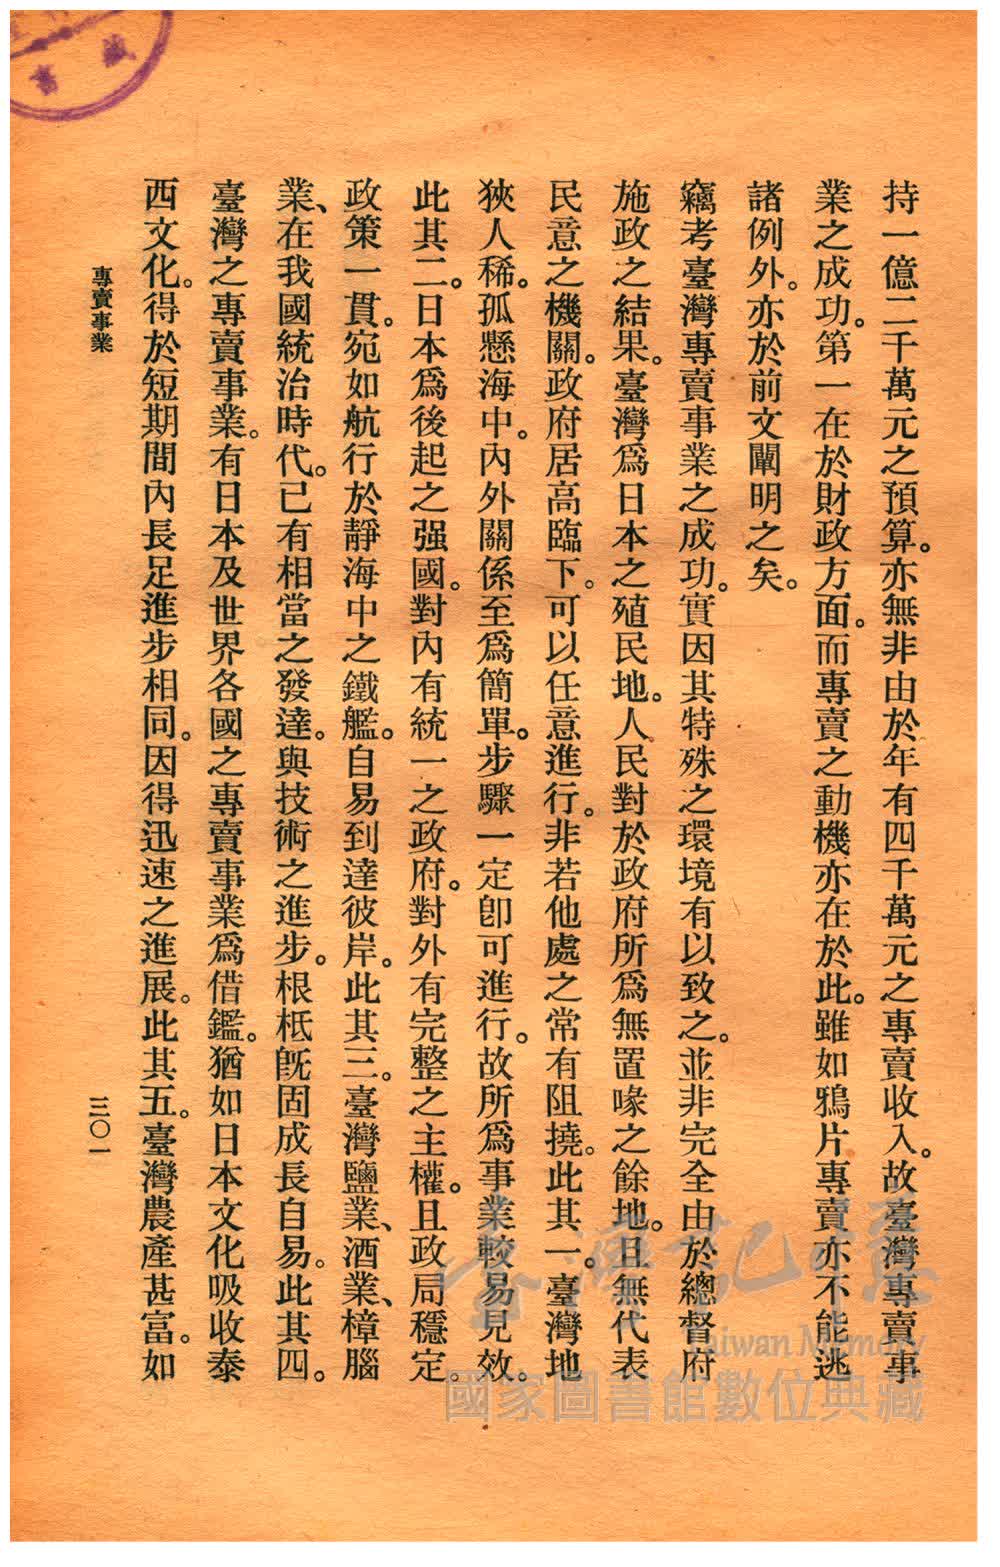 持一億二千萬元之預算。亦無非由於年有四千萬元之專賣收入。故臺灣專賣事
業之成功。第一在於財政方面。而專賣之動機亦在於此。雖如鴉片專賣亦不能逃
諸例外。亦於前文闡明之矣。
竊考臺灣專賣事業之成功。實因其特殊之環境有以致之。並非完全由於總督府
施政之結果。臺灣爲日本之殖民地。人民對於政府所爲無置喙之餘地。且無代表
民意之機關。政府居高臨下。可以任意進行。非若他處之常有阻撓。此其一。臺灣地
狹人稀。孤懸海中。內外關係至爲簡單。步驟一定卽可進行。故所爲事業較易見效。
此其二。日本爲後起之强國。對內有統一之政府。對外有完整之主權。且政局穩定。
政策一貫。宛如航行於靜海中之鐵艦。自易到達彼岸。此其三。臺灣鹽業、酒業、樟腦
業、在我國統治時代。已有相當之發達。與技術之進步。根柢旣固成長自易。此其四。
臺灣之專賣事業。有日本及世界各國之專賣事業爲借鑑。猶如日本文化吸收泰
西文化。得於短期間內長足進步相同。因得迅速之進展。此其五。臺灣農產甚富。如
專賣事業
三〇一
藏書
臺灣記憶
Taiwan Memory
國家圖書館數位典藏